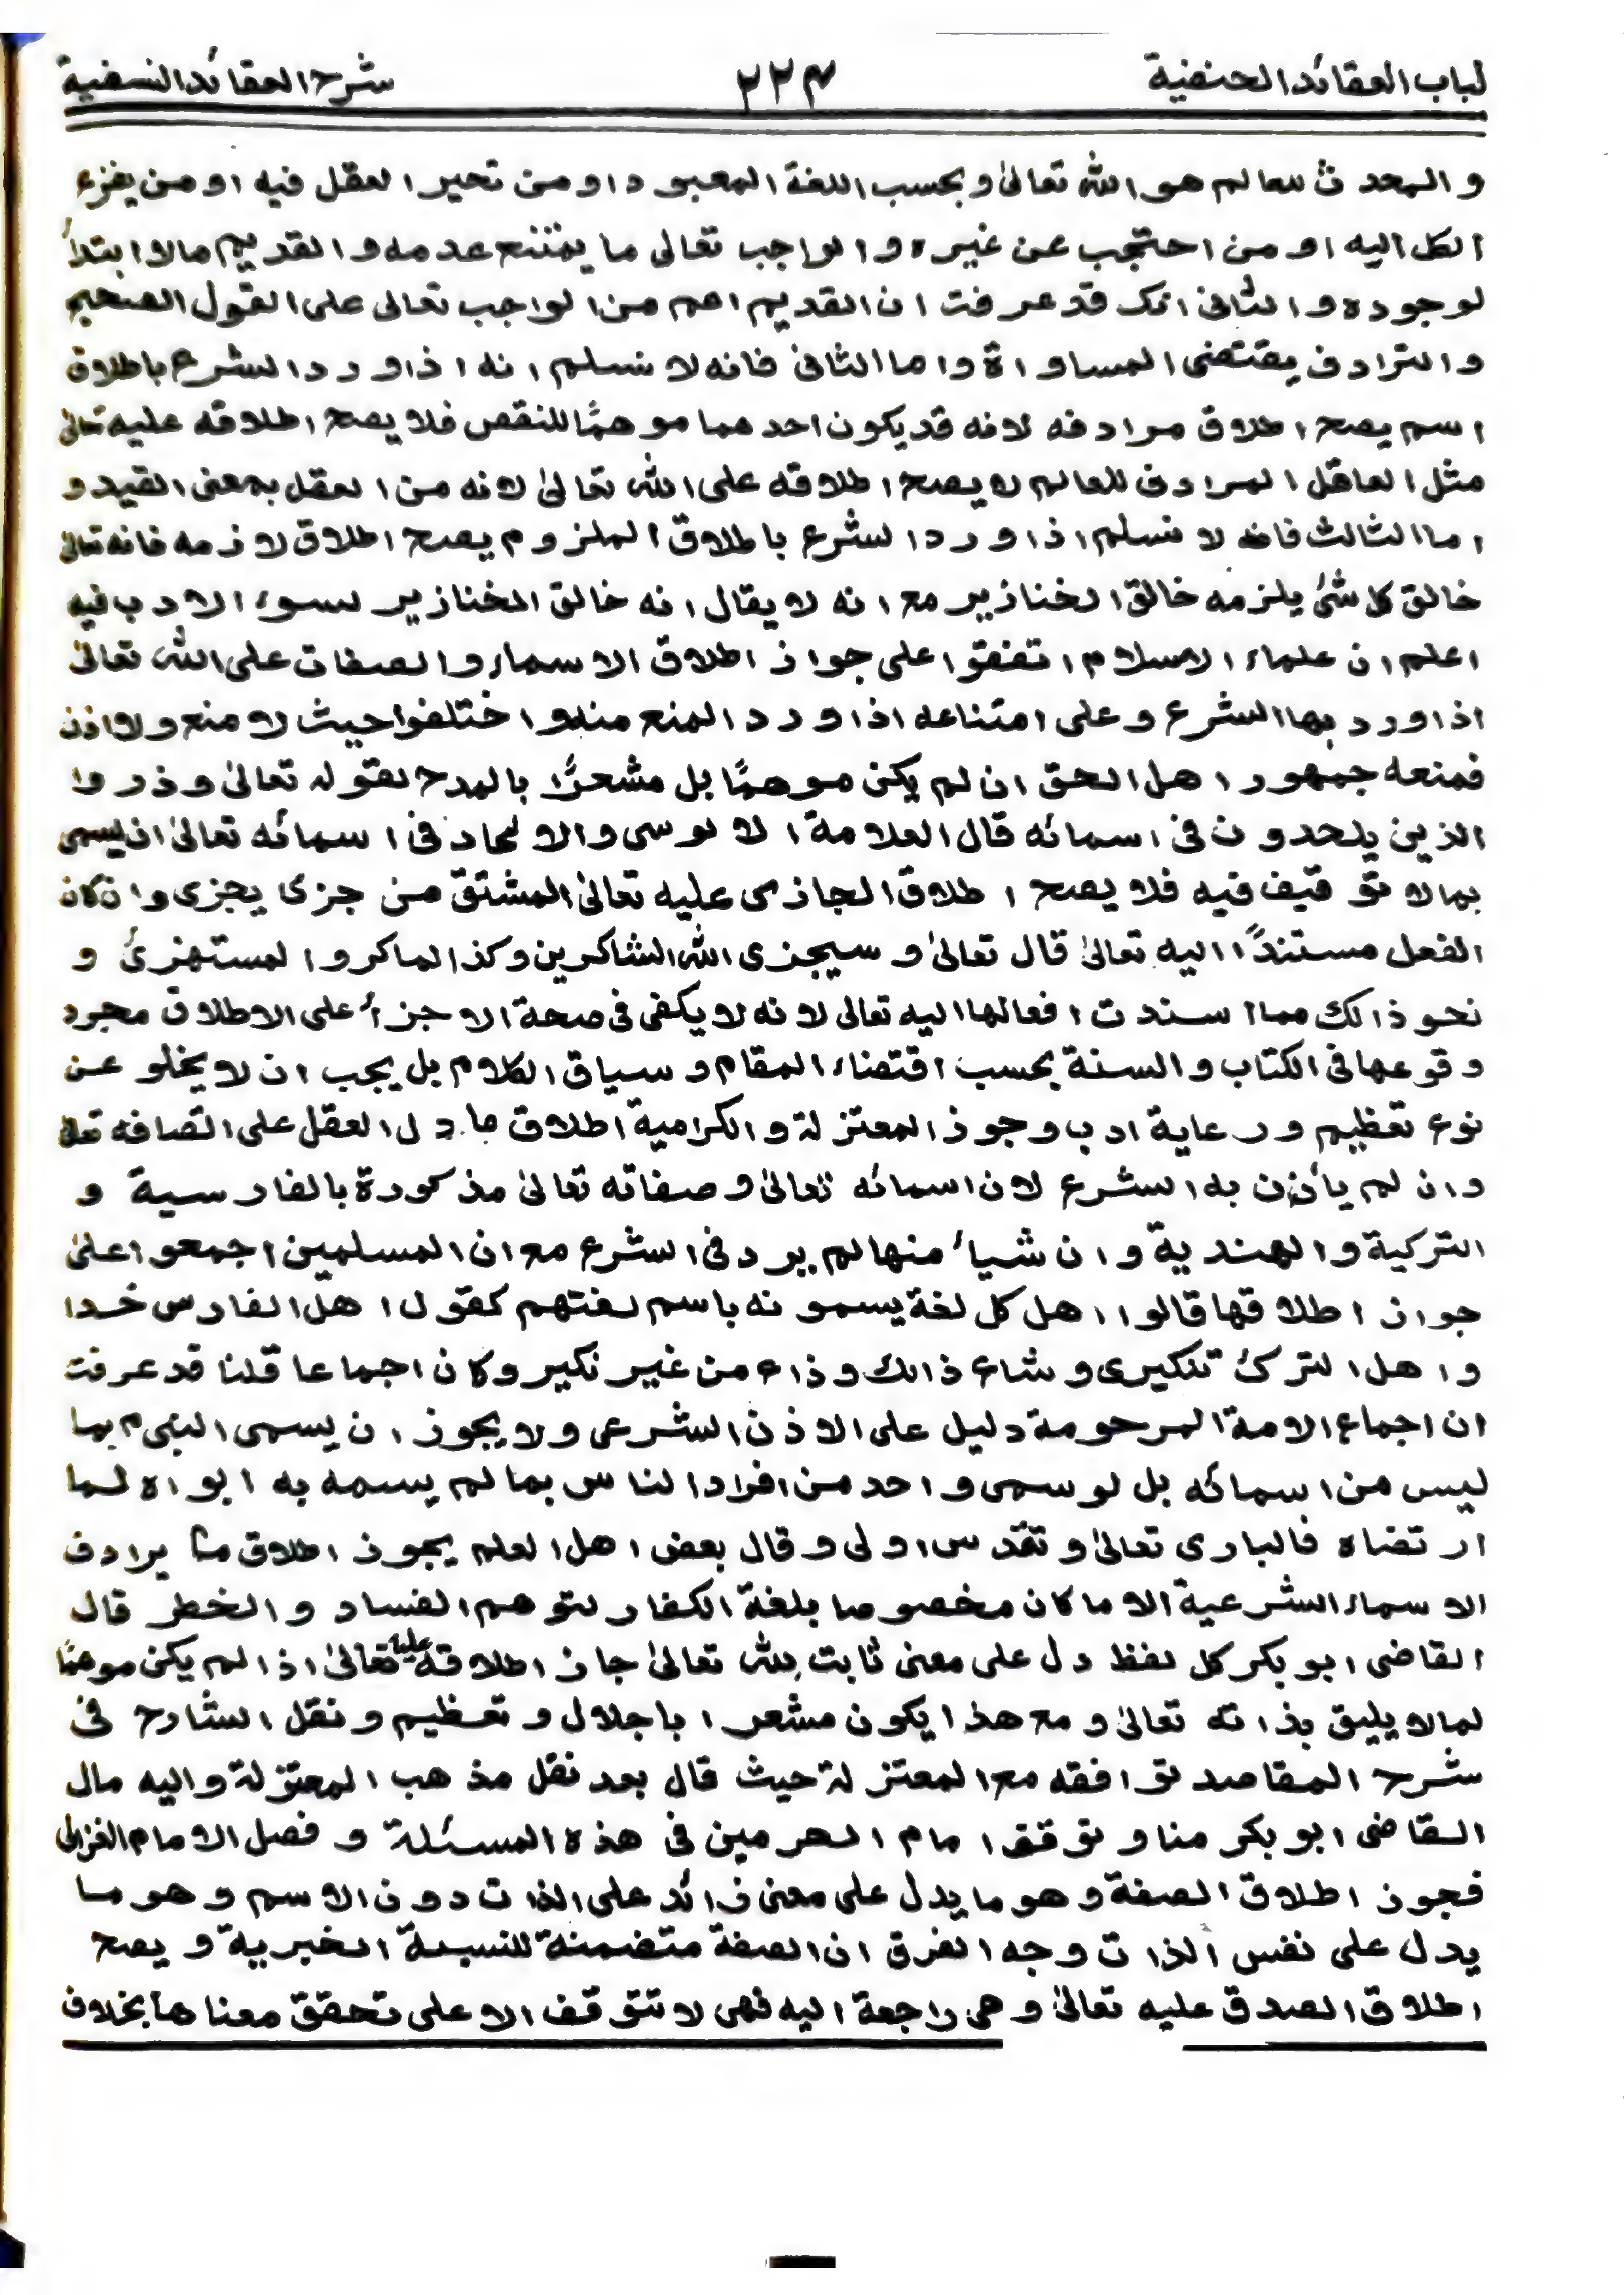 لباب العقائد الحنفية ٢٢٤ شرح العقائد النسفية
و المحدث للعالم هو الله تعالىٰ و بحسب اللغة المعبود او من تحير العقل فيه او من يفزع
الكل اليه او من احتجب عن غيره و الواجب تعالى ما يمتنع عدمه و القديم مالا ابتدأ
لوجوده و الثانى انك قد عرفت ان القديم اعم من الواجب تعالى على القول الصحيح
و الترادف يقتضى المساواة و اما الثانى فانه لا نسلم انه اذا ورد الشرع باطلاق
اسم يصح اطلاق مرادفه لانه قد يكون احدهما موهمًا للنقص فلا يصح اطلاقه عليه تعالىٰ
مثل العاقل المرادف للعالم لا يصح اطلاقه على الله تعالىٰ لانه من العقل بمعنى القيد و
اما الثالث فانه لا نسلم اذا ورد الشرع باطلاق الملزوم يصح اطلاق لازمه فانه تعالىٰ
خالق كل شئ يلزمه خالق الخنازير مع انه لا يقال انه خالق الخنازير لسوء الادب فيه
اعلم ان علماء الاسلام اتفقوا على جواز اطلاق الاسماء و الصفات على الله تعالىٰ
اذا ورد بها الشرع و على امتناعه اذا ورد المنع منه و اختلفوا حيث لا منع ولا اذن
فمنعه جمهور اهل الحق ان لم يكن موهمًا بل مشعرًا بالمدح لقوله تعالىٰ و ذروا
الذين يلحدون فى اسمائه قال العلامة الالوسى و الالحاد فى اسمائه تعالىٰ ان يسمى
بما لا توقيف فيه فلا يصح اطلاق الجازى عليه تعالىٰ المشتق من جزى يجزى و ان كان
الفعل مستندًا اليه تعالىٰ قال تعالىٰ و سيجزى الله الشاكرين و كذا الماكر و المستهزئ و
نحو ذالك مما اسندت افعالها اليه تعالى لانه لا يكفى فى صحة الاجزأ على الاطلاق مجرد
وقوعها فى الكتاب و السنة بحسب اقتضاء المقام و سياق الكلام بل يجب ان لا يخلو عن
نوع تعظيم و رعاية ادب و جوز المعتزلة و الكرامية اطلاق ما دل العقل على اتصافه تعالىٰ
و ان لم يأذن به الشرع لان اسمائه تعالىٰ و صفاته تعالىٰ مذكورة بالفارسية و
التركية و الهندية و ان شيأ منها لم يرد فى الشرع مع ان المسلمين اجمعوا علىٰ
جواز اطلاقها قالوا اهل كل لغة يسمونه باسم لغتهم كقول اهل الفارس خدا
و اهل الترك تنكيرى و شاع ذالك و ذاع من غير نكير و كان اجماعا قلنا قد عرفت
ان اجماع الامة المرحومة دليل على الاذن الشرعى و لا يجوز ان يسمى النبى م بما
ليس من اسمائه بل لو سمى واحد من افراد الناس بما لم يسمه به ابواه لما
ارتضاه فالبارى تعالىٰ و تقدس اولى و قال بعض اهل العلم يجوز اطلاق ما يرادف
الاسماء الشرعية الا ما كان مخصوصا بلغة الكفار لتوهم الفساد و الخطر قال
القاضى ابو بكر كل لفظ دل على معنى ثابت لله تعالىٰ جاز اطلاقه عليه تعالىٰ اذا لم يكن موهمًا
لما لا يليق بذاته تعالىٰ و مع هذا يكون مشعرا باجلال و تعظيم و نقل الشارح فى
شرح المقاصد توافقه مع المعتزلة حيث قال بعد نقل مذهب المعتزلة و اليه مال
القاضى ابو بكر منا و توقف امام الحرمين فى هذه المسئلة و فصل الامام الغزالى
فجوز اطلاق الصفة و هو ما يدل على معنى زائد على الذات دون الاسم و هو ما
يدل على نفس الذات و جه الفرق ان الصفة متضمنة للنسبة الخبرية و يصح
اطلاق الصدق عليه تعالىٰ و هى راجعة اليه فهى لا تتوقف الا على تحقق معناها بخلاف